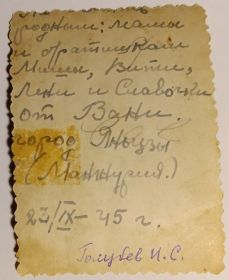 родным: мамы
и братишкам
Миши, Вити,
Лени и Славочки
от Вани.
город Яньузы
(Манжурия.)
23/IX-45 г.
Голубев И.С.